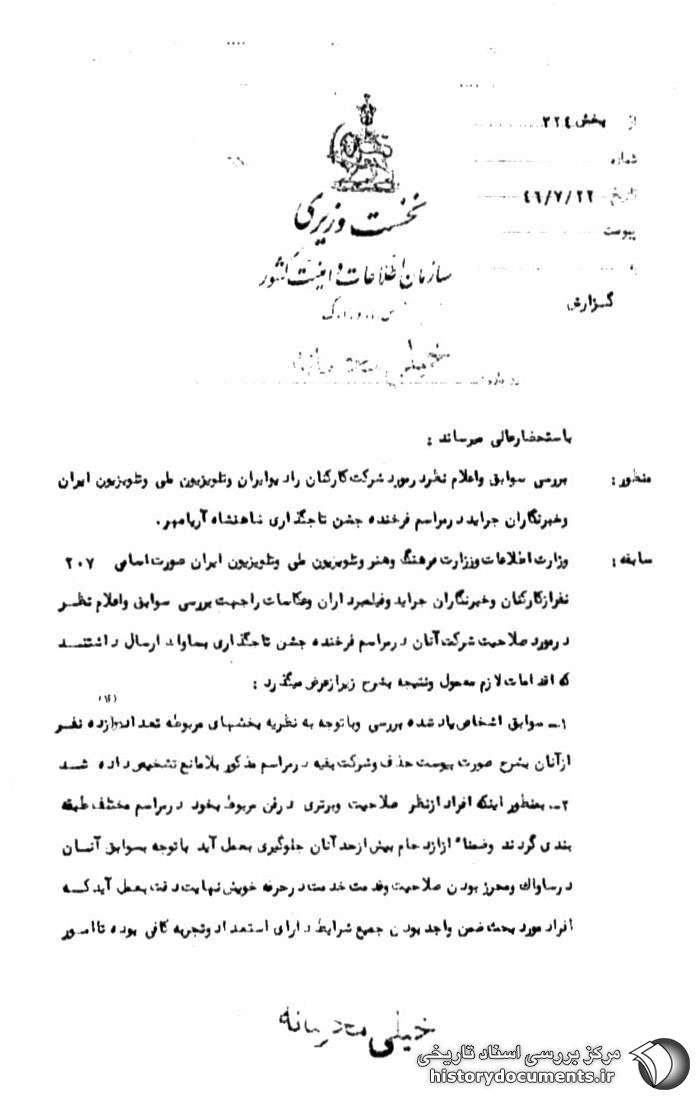 از بخش ۳۲۴
شماره
تاریخ ۴۶/۷/۲۲
پیوست
نخست وزیری
سازمان اطلاعات و امنیت کشور
گزارش
خیلی محرمانه
درباره
باستحضارعالی میرساند :
منظور : بررسی سوابق واعلام نظردرمورد شرکت کارکنان رادیوایران وتلویزیون ملی وتلویزیون ایران
وخبرنگاران جراید درمراسم فرخنده جشن تاجگذاری شاهنشاه آریامهر.
سابقه : وزارت اطلاعات وزارت فرهنگ وهنر وتلویزیون ملی وتلویزیون ایران صورت اسامی ۲۰۷
نفرازکارکنان وخبرنگاران جراید وفیلمبرداران وعکاسان راجهت بررسی سوابق واعلام نظر
درمورد صلاحیت شرکت آنان درمراسم فرخنده جشن تاجگذاری بساواك ارسال داشتند
که اقدامات لازم معمول ونتیجه بشرح زیرازعرض میگذرد :
۱ـ سوابق اشخاص یاد شده بررسی وباتوجه به نظریه بخشهای مربوطه تعداد دوازده نفر
(۱۲)
ازآنان بشرح صورت پیوست حذف وشرکت بقیه درمراسم مذکور بلامانع تشخیص داده شد
۲ـ بمنظور اینکه افراد ازنظر صلاحیت وبرتری درفن مربوط بخود درمراسم مختلف طبقه
بندی گردند وضمناً ازازدحام بیش ازحد آنان جلوگیری بعمل آید باتوجه بسوابق آنان
درساواك ومحرز بودن صلاحیت وقدمت خدمت درحرفه خویش نهایت دقت بعمل آید که
افراد مورد بحث ضمن واجد بودن جمیع شرایط دارای استعداد وتجربه کافی بوده تاامور
خیلی محرمانه
مرکز بررسی اسناد تاریخی
historydocuments.ir